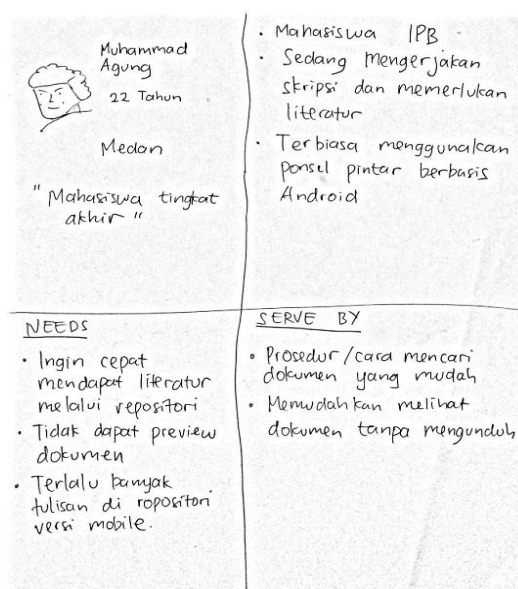 Muhammad
Agung
22 Tahun
Medan
"Mahasiswa tingkat
akhir"
• Mahasiswa IPB
• Sedang mengerjakan
skripsi dan memerlukan
literatur
• Terbiasa menggunakan
ponsel pintar berbasis
Android
NEEDS
• Ingin cepat
mendapat literatur
melalui repositori
• Tidak dapat preview
dokumen
• Terlalu banyak
tulisan di ropositori
versi mobile.
SERVE BY
• Prosedur/cara mencari
dokumen yang mudah
• Memudahkan melihat
dokumen tanpa mengunduh